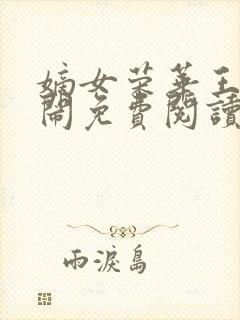 嫡女荣華王
閙免費閱讀
雨淚島